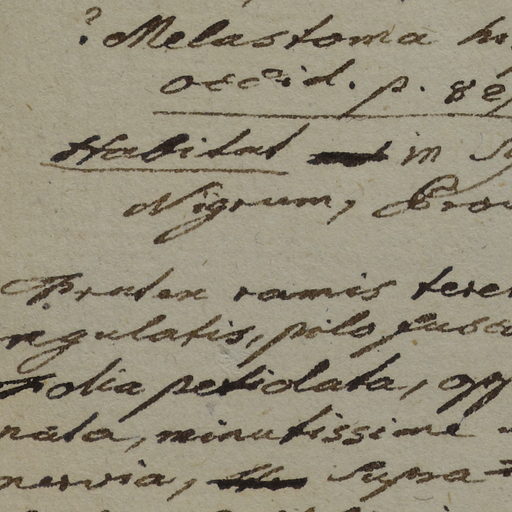 ? Melastoma hi
occid. p. 8
Habitat in Sy
Nigrum, Prov
Frutex ramis tere
ngulatis, pilo fusco
Folia petiolata, opp
nata, minutissime
nervia, supra